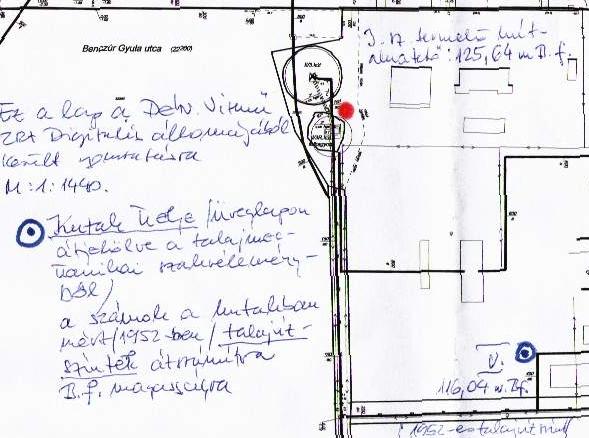 Benczúr Gyula utca (22200)
I. sz termelő kút-
: 125,64 m B.f.
Ez a lap a Debr. Vízmű
ZRt Digitális állományából
készült
M:1:1440.
Kutak helye /üveglapon
a talajmec-
hanikai szakvélemény-
ből/
a számok a kutakban
mért /1952-ben/ talajvíz-
szintek átszámítva
B.f. magasságra
V.
116,04 m.Bf.
1952-es talajvízszint